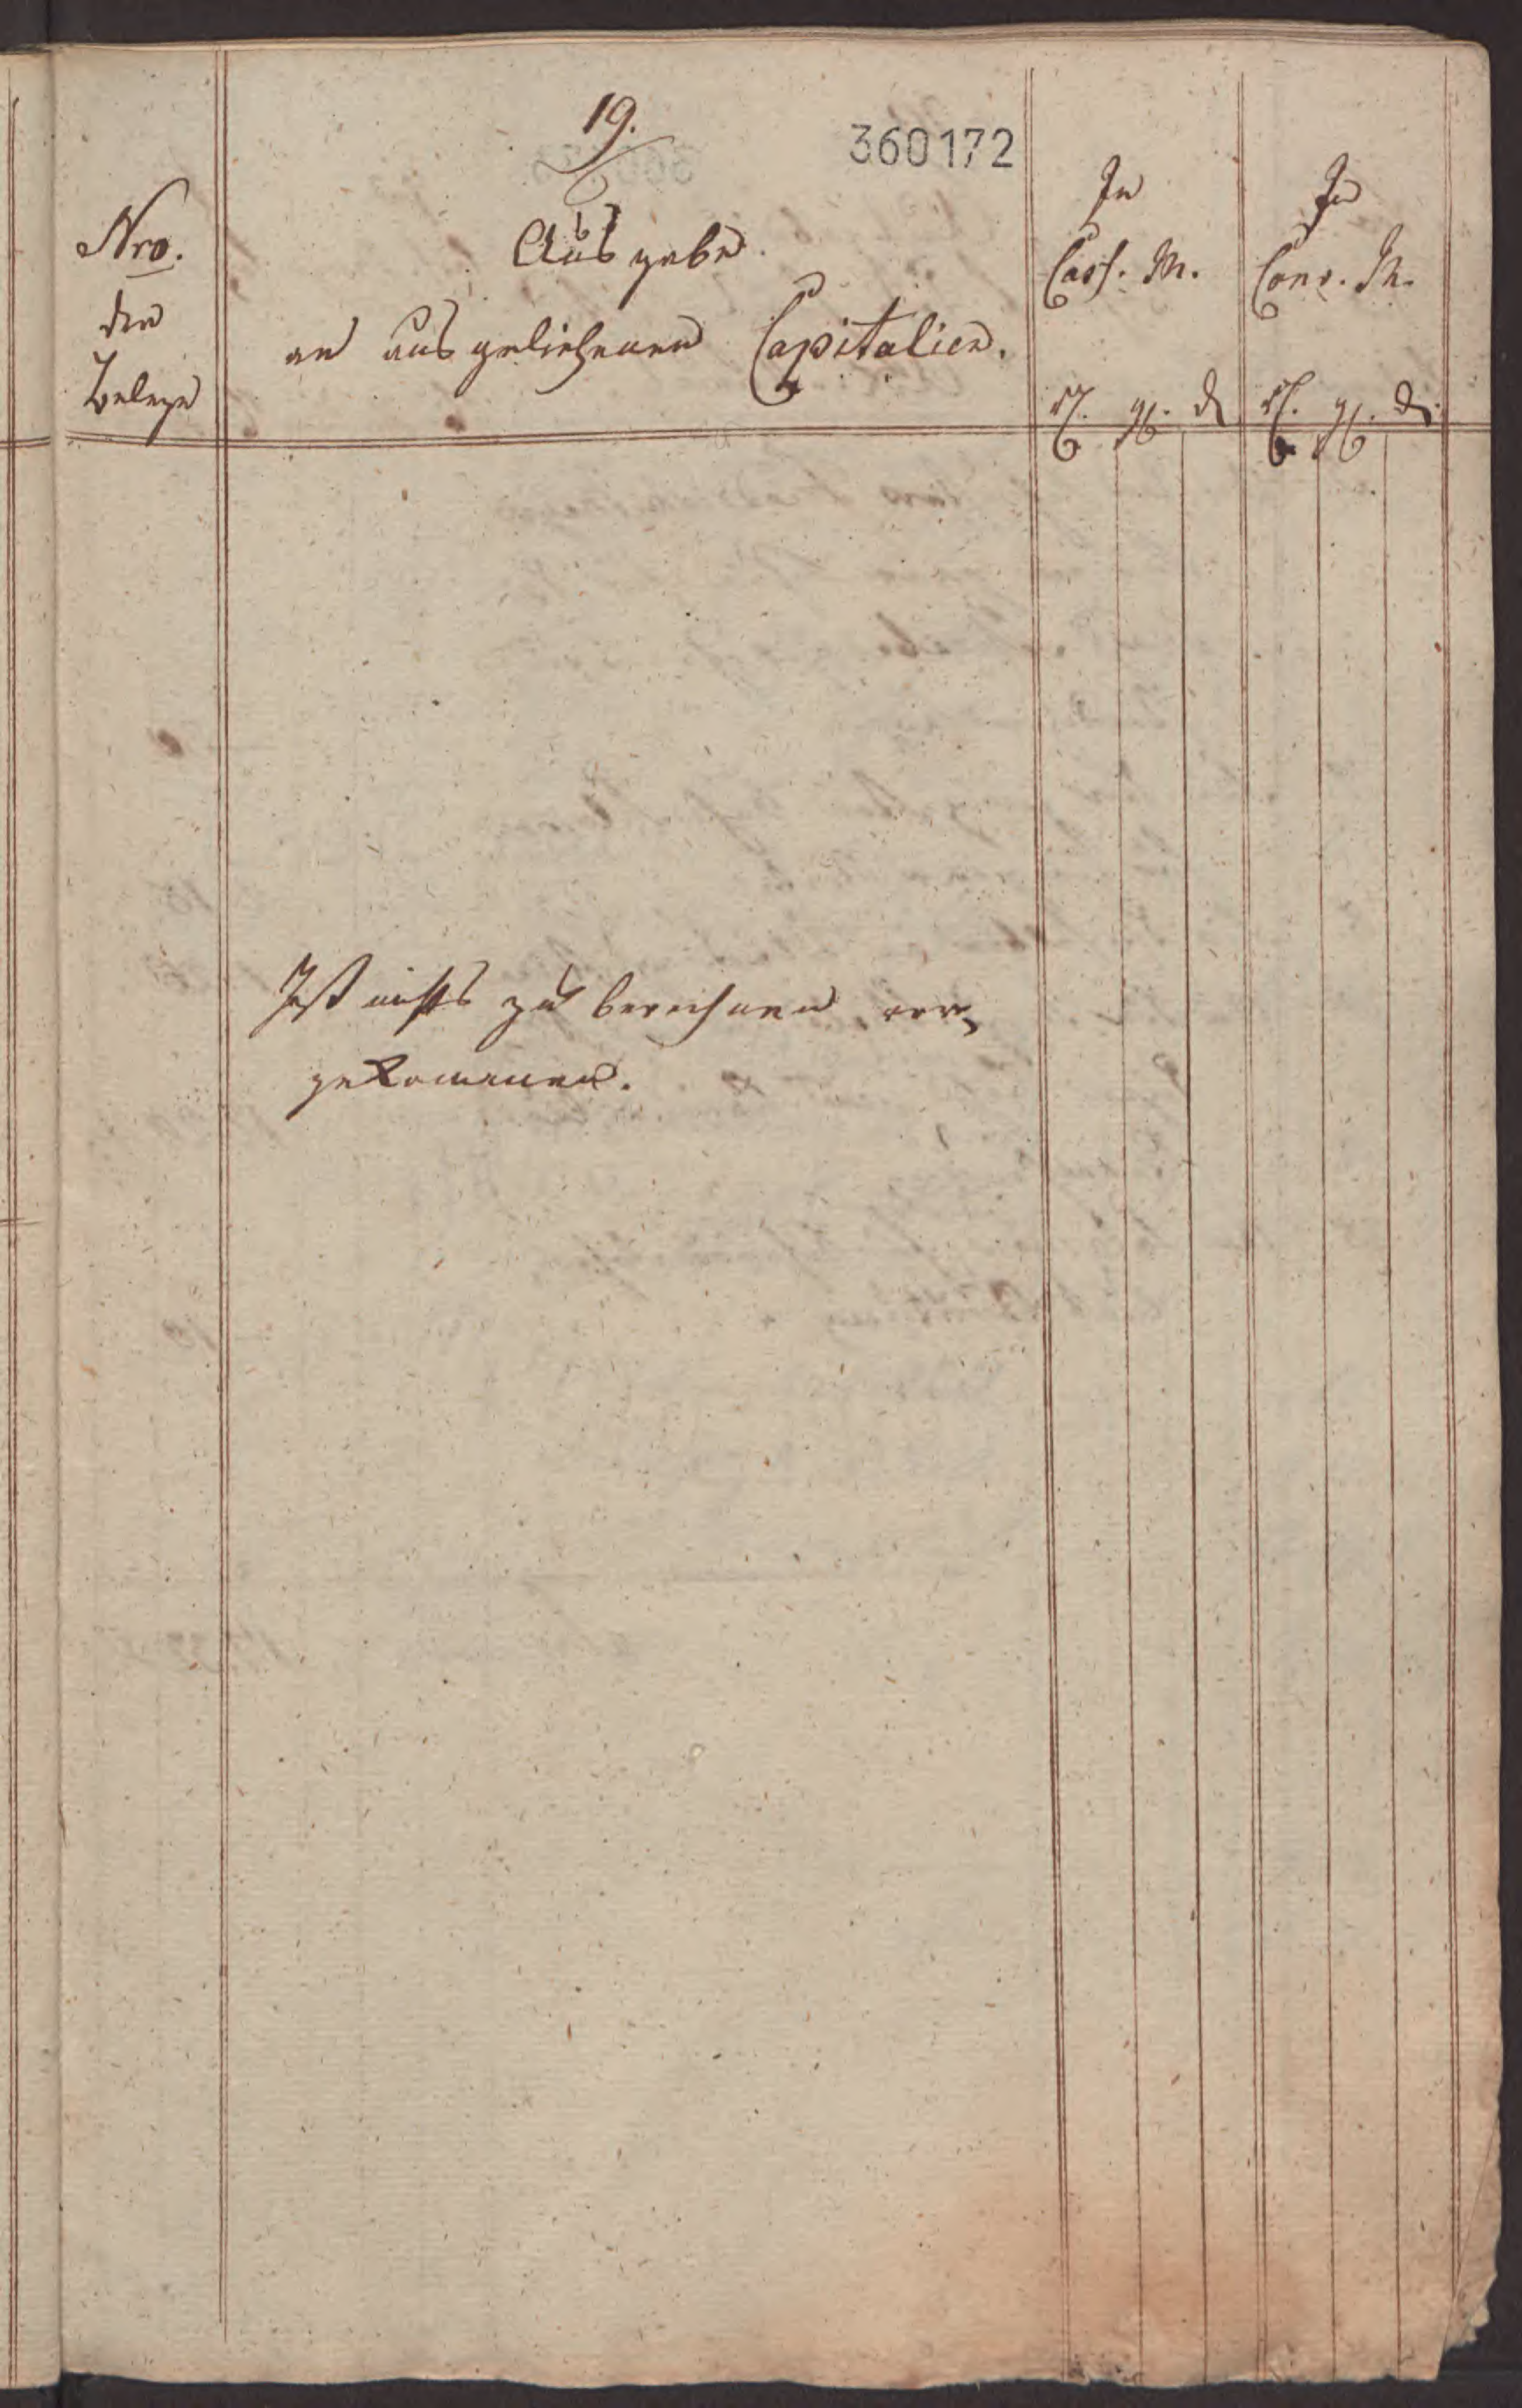 19.
360172
Nro.
der
Belege
Ausgabe
an ausgeliehenen Capitalien.
In
Cass. M.
In
Conv. M.
rt. gl. d
rt. gl. d.
Ist nichts zu berechnen vor-
gekommen.